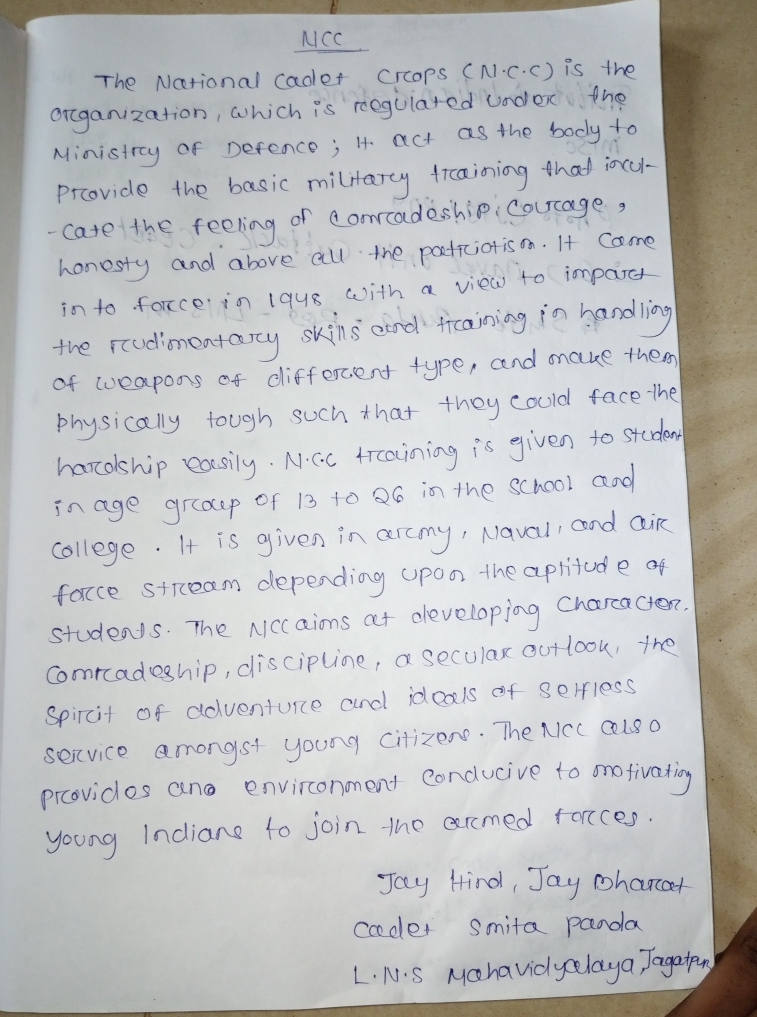 NCC
The National Cadet Crops (N.C.C) is the
organization, which is regulated under the
Ministry of Defence; It act as the body to
Provide the basic military training that incul-
-cate the feeling of Comradeship, Courage,
honesty and above all the patriotism. It Came
in to force; in 1948 with a view to impart
the rudimentary skills and training in handling
of weapons of different type, and make them
Physically tough such that they could face the
hardship easily. N.C.C training is given to student
in age group of 13 to 26 in the School and
College. It is given in army, Naval, and air
force stream depending upon the aptitude of
Students. The NCC aims at developing Character,
Comradeship, discipline, a secular outlook, the
Spirit of adventure and ideals of Selfless
service amongst young Citizens. The NCC also
provides and environment Conducive to motivating
young Indians to join the armed forces.
Jay Hind, Jay Bharat
Cadet Smita Panda
L.N.S Mahavidyalaya, Jagatpur